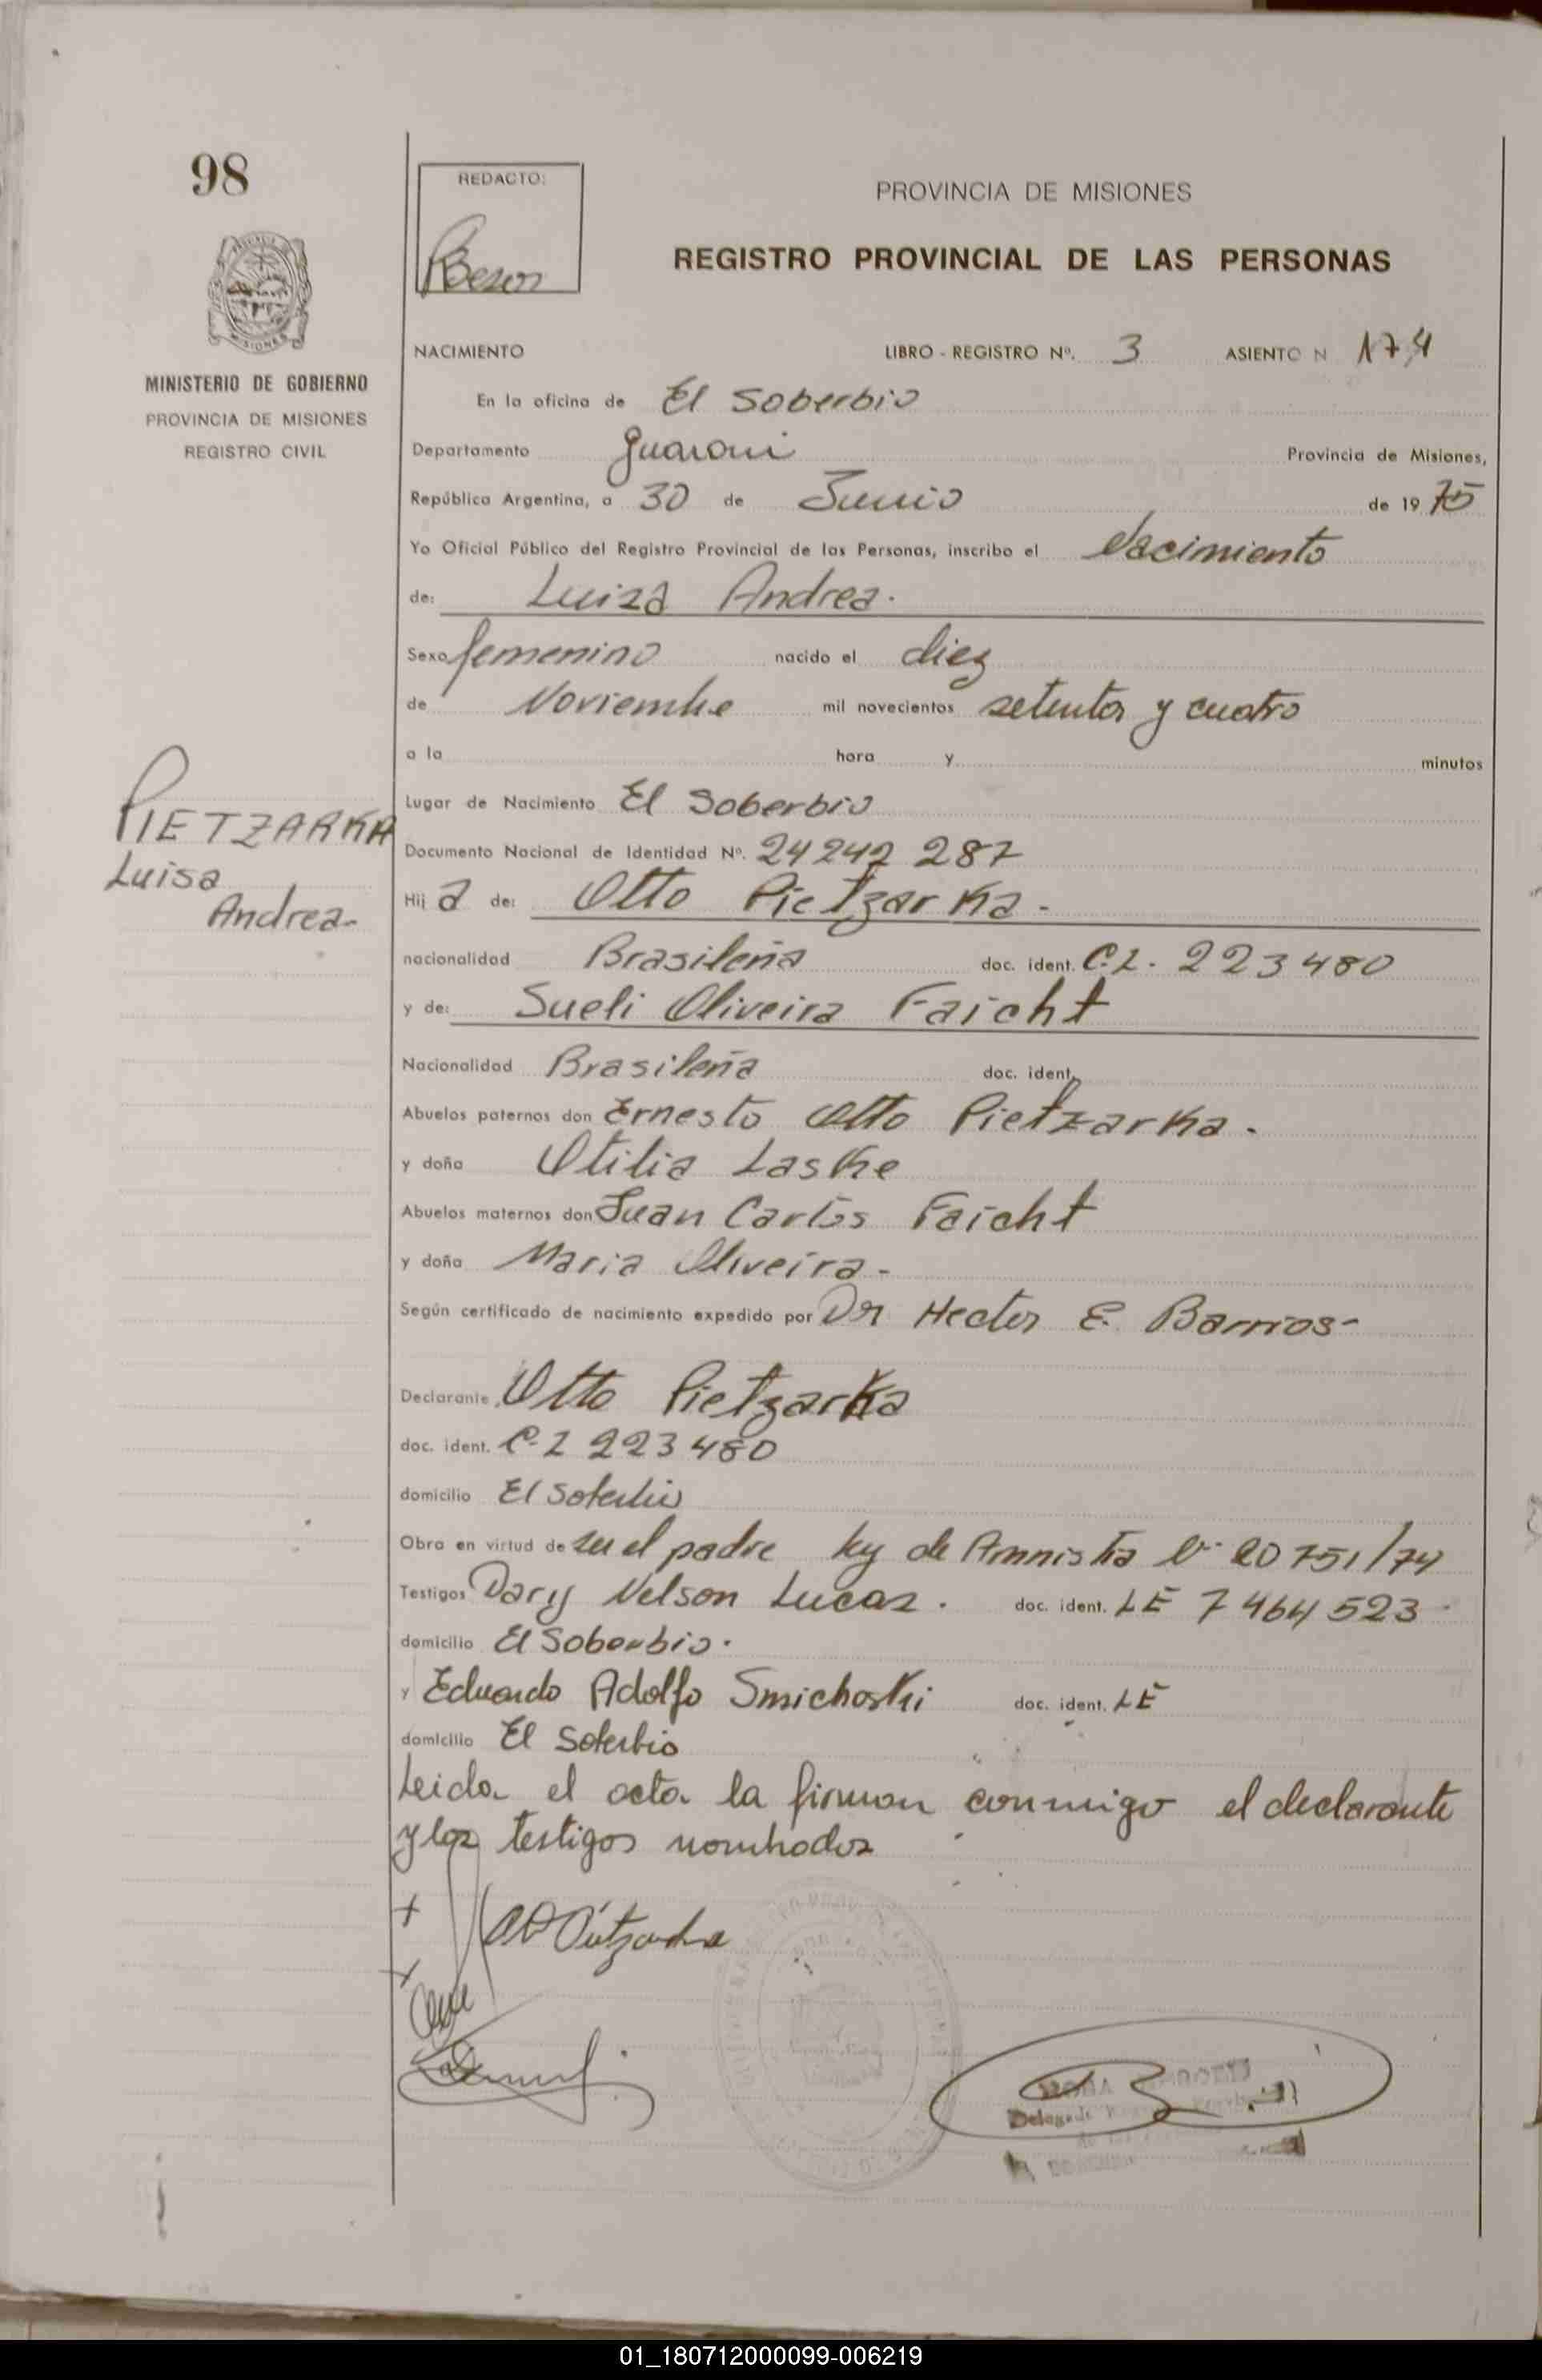 98
REDACTO:
PROVINCIA DE MISIONES
REGISTRO PROVINCIAL DE LAS PERSONAS
MISIONES
MINISTERIO DE GOBIERNO
PROVINCIA DE MISIONES
REGISTRO CIVIL
NACIMIENTO LIBRO - REGISTRO Nº. 3 ASIENTO N 174
En la oficina de El Soberbio
Departamento Guarani Provincia de Misiones,
República Argentina, a 30 de Junio de 1975
Yo Oficial Público del Registro Provincial de las Personas, inscribo el Nacimiento
de: Luiza Andrea.
Sexo femenino nacido el diez
de Noviembre mil novecientos setenta y cuatro
a la hora y minutos
PIETZARKA
Luisa
Andrea-
Lugar de Nacimiento El Soberbio
Documento Nacional de Identidad Nº. 24242 287
Hija de: Otto Pietzarka-
nacionalidad Brasileña doc. ident. C.I. 223480
y de: Sueli Oliveira Faicht
Nacionalidad Brasileña doc. ident.
Abuelos paternos don Ernesto Otto Pietzarka.
y doña Otilia Laske
Abuelos maternos don Juan Carlos Faicht
y doña Maria Oliveira-
Según certificado de nacimiento expedido por Dr Hector E. Barrios-
Declarante Otto Pietzarka
doc. ident. C.I 223480
domicilio El Soberbio
Obra en virtud de ser el padre ley de Amnistia Nº 20751/74
Testigos Dary Nelson Lucas. doc. ident. LE 7464523-
domicilio El Soberbio.
y Eduardo Adolfo Smichoski doc. ident. LE
domicilio El Soberbio
Leida el acta la firman conmigo el declarante
y los testigos nombrados
Delegado
01_180712000099-006219